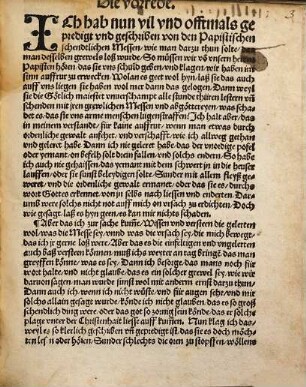 Die vorrede.
ICh hab nun vil vnd offtmals ge
predigt vnd geschriben von den Papistischen
schendlichen Messen, wie man darzu thun solte,
man desselben grewels loß wurde. So müssen wir vö vnsern heilosen
Papisten hören, das sie vns schuld geben, vnd klagen, wir haben im
sinn auffrur zu erwecken. Wolan es geet wol hyn, laß sie das auch
auff vns liegen, sie haben vol mer dann das gelogen. Dann weyl
sie die Götlich maiestet vnuerschampt, alle stunde thüren lestern vñ
schenden mit jren grewlichen Messen vnd abgötterey, was schad
et es, das sie vns arme menschen lügenstraffen. Ich halt aber, das
in meinem verstand, für kaine auffrur, wenn man etwas durch
ordenliche gewalt auffhet, vnd verschafft, wie ich allweg gethan
vnd geleret habe. Dann ich nie geleret habe, das der vnordige pofel
oder yemant, on befelh solt drein fallen, vnd solchs endern. So habe
ich auch nie gehaissen, das yemant mit dem schwert jn in die heuser
lauffen, oder sie sunst beleydigen solte. Sunder mit allem fleyß ge
weret, vnd die ordenliche gewalt ermanet, oder das sie es, durchs
wort Gottes erkennet, von jn selbs nach liessen vnd enderten. Das
vmb were solchs nicht not auff mich on vrsach zu erdichten. Doch
wie gesagt, laß es hyn geen, es kan mir nichts schaden.
¶ Aber das ich zur sache kume, Wissen vnd versteen die gelerten
wol, was die Messe sey, vnnd was die vrsach sey, die mich beweg
das ich jr gerne loß were. Aber das es die einfeltigen vnd vngelerten
auch baß versteen können, muß ichs weyter an tag bringē, das man
greyffen könne, was es sey. Dann ich besorge, das mans noch für
wort halte, vnd nicht glaube, das es ein solcher grewel sey, wie wir
daruon sagen, man würde sunst wol mit andern ernst darzu thun.
Dann auch ich, wenn ich nicht wüste, vnd für augen sehe, vnd mir
solchs allain gesagt wurde, könde ich nicht glauben, das es so groß
schendlich ding were, oder das got so zornig sein könde, das er solche
plage vnter die Christenhait liesse auff kumen. Nun klag ich das,
weyl es so klerlich geschriben vñ gepredigt ist, das sie es doch möch
ten lesn oder hören, Sunder schlechts die oren zu stopffen, wöllens